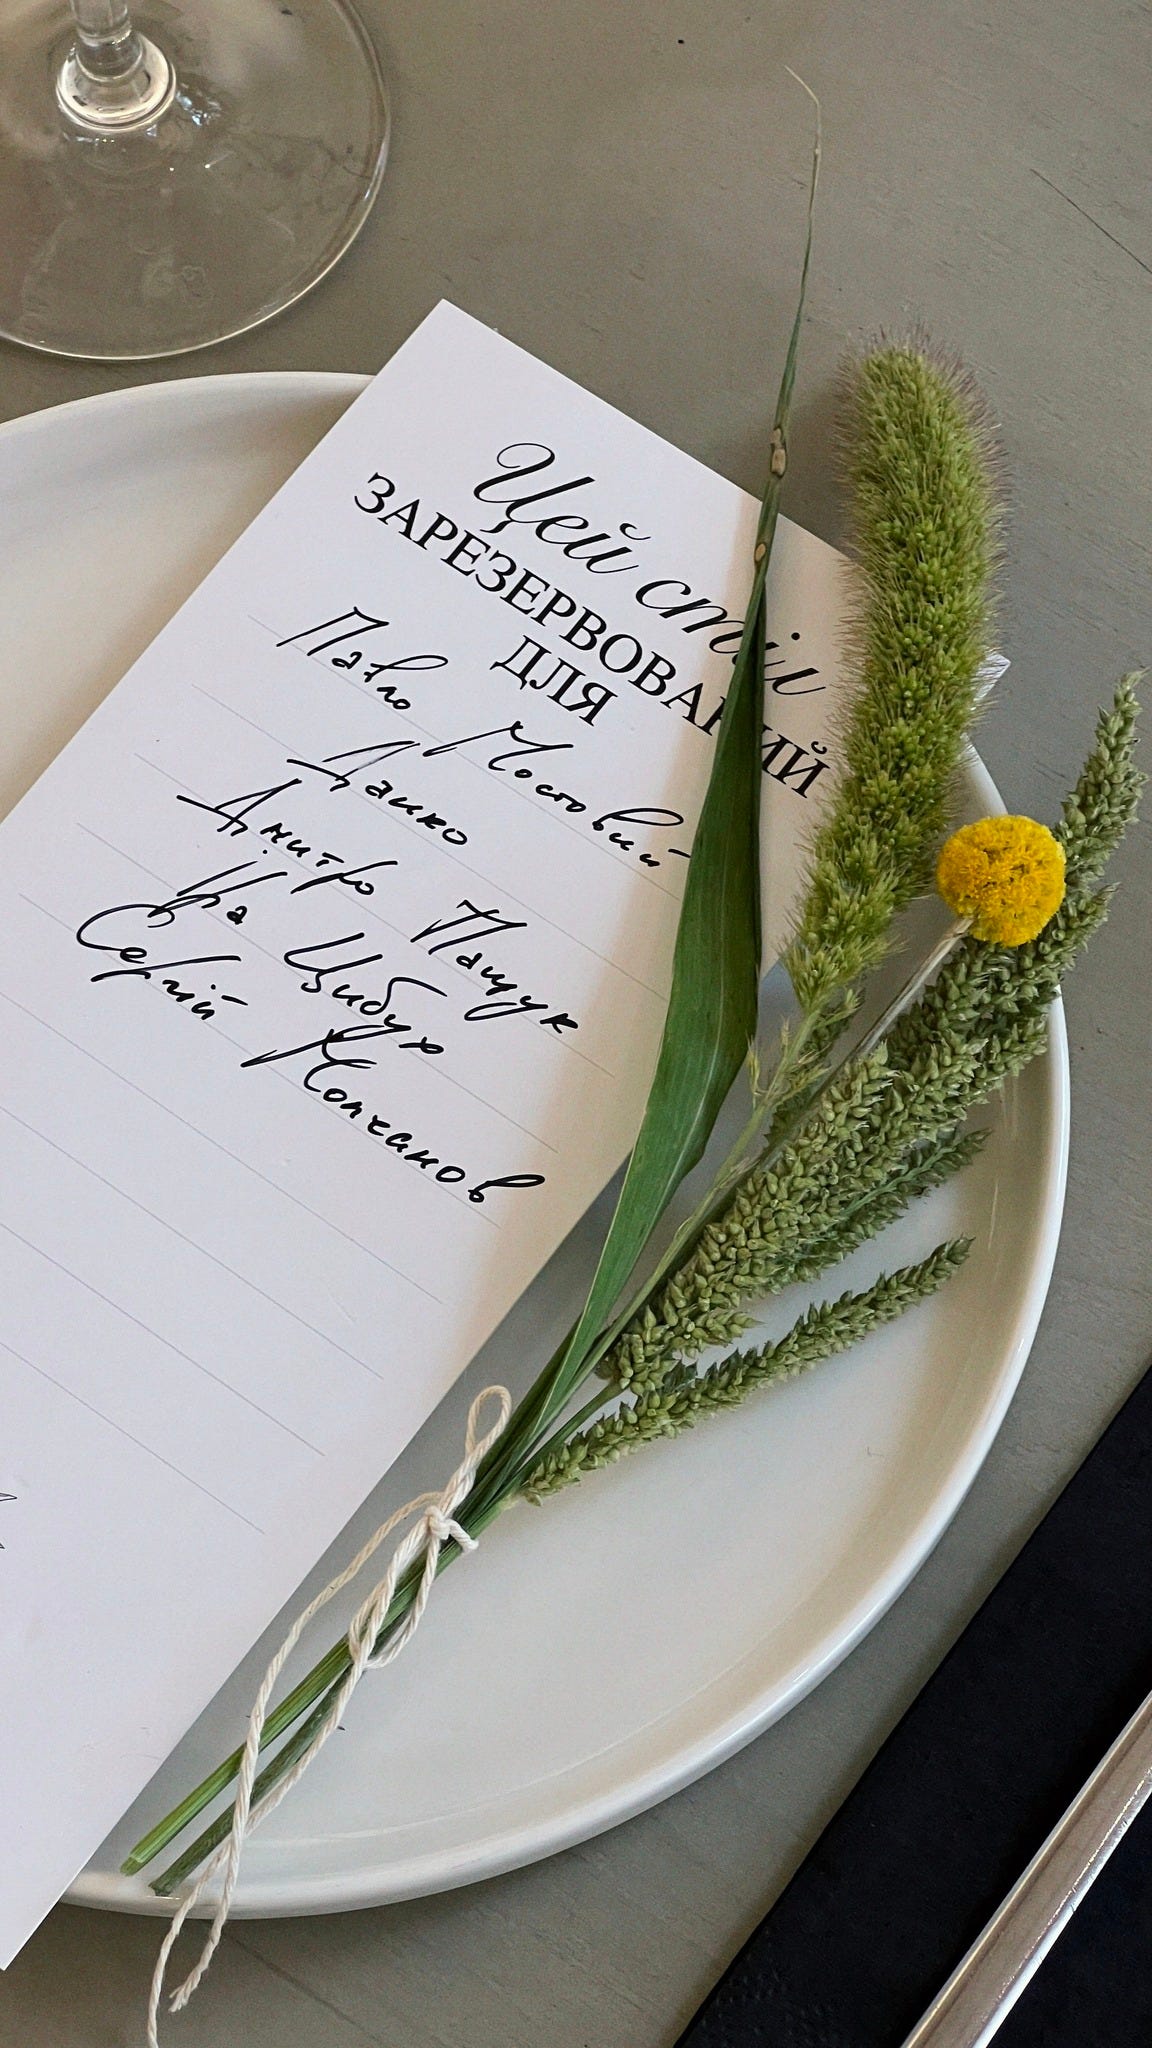 Цей стіл
ЗАРЕЗЕРВОВАНИЙ
ДЛЯ
Павло Мостовий
Дашко
Дмитро Пащук
Іра Цибух
Сергій Молчанов